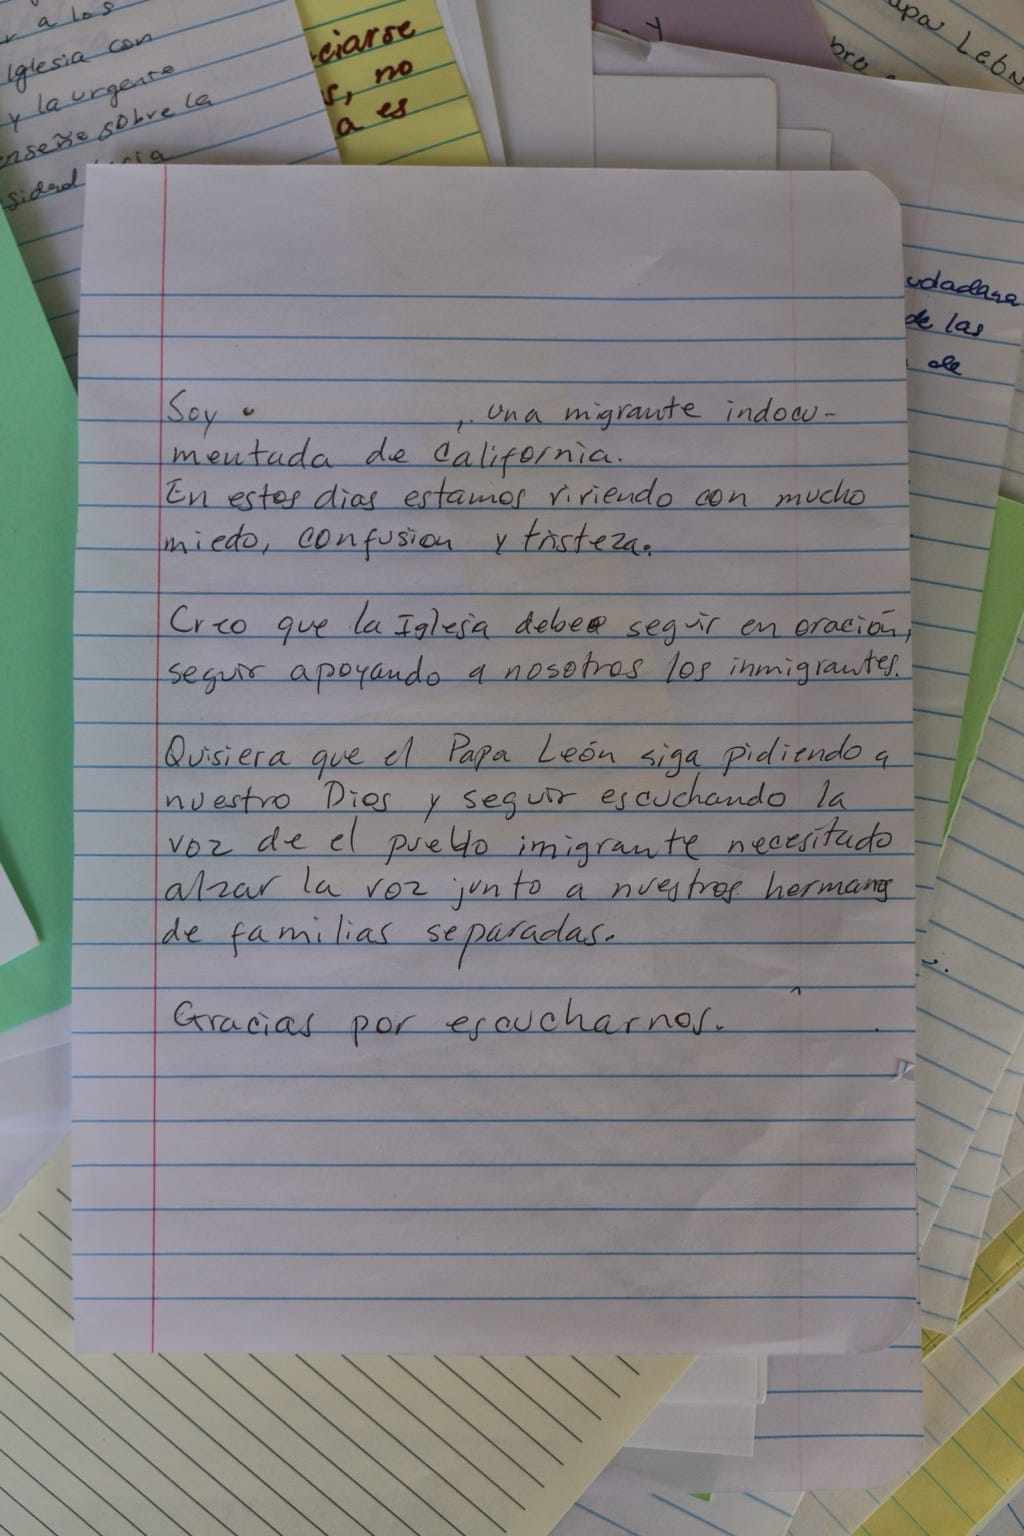 r a los
Iglesia con
y la urgente
enseñe sobre la
sidad
ciarse
s, no
a es
y
apa León
bro
udadana
de las
de
Soy , una migrante indocu-
mentada de California.
En estos dias estamos viviendo con mucho
miedo, confusion y tristeza.
Creo que la Iglesia debe seguir en oración,
seguir apoyando a nosotros los inmigrantes.
Quisiera que el Papa León siga pidiendo a
nuestro Dios y seguir escuchando la
voz de el pueblo imigrante necesitado
alzar la voz junto a nuestros hermanos
de familias separadas.
Gracias por escucharnos.